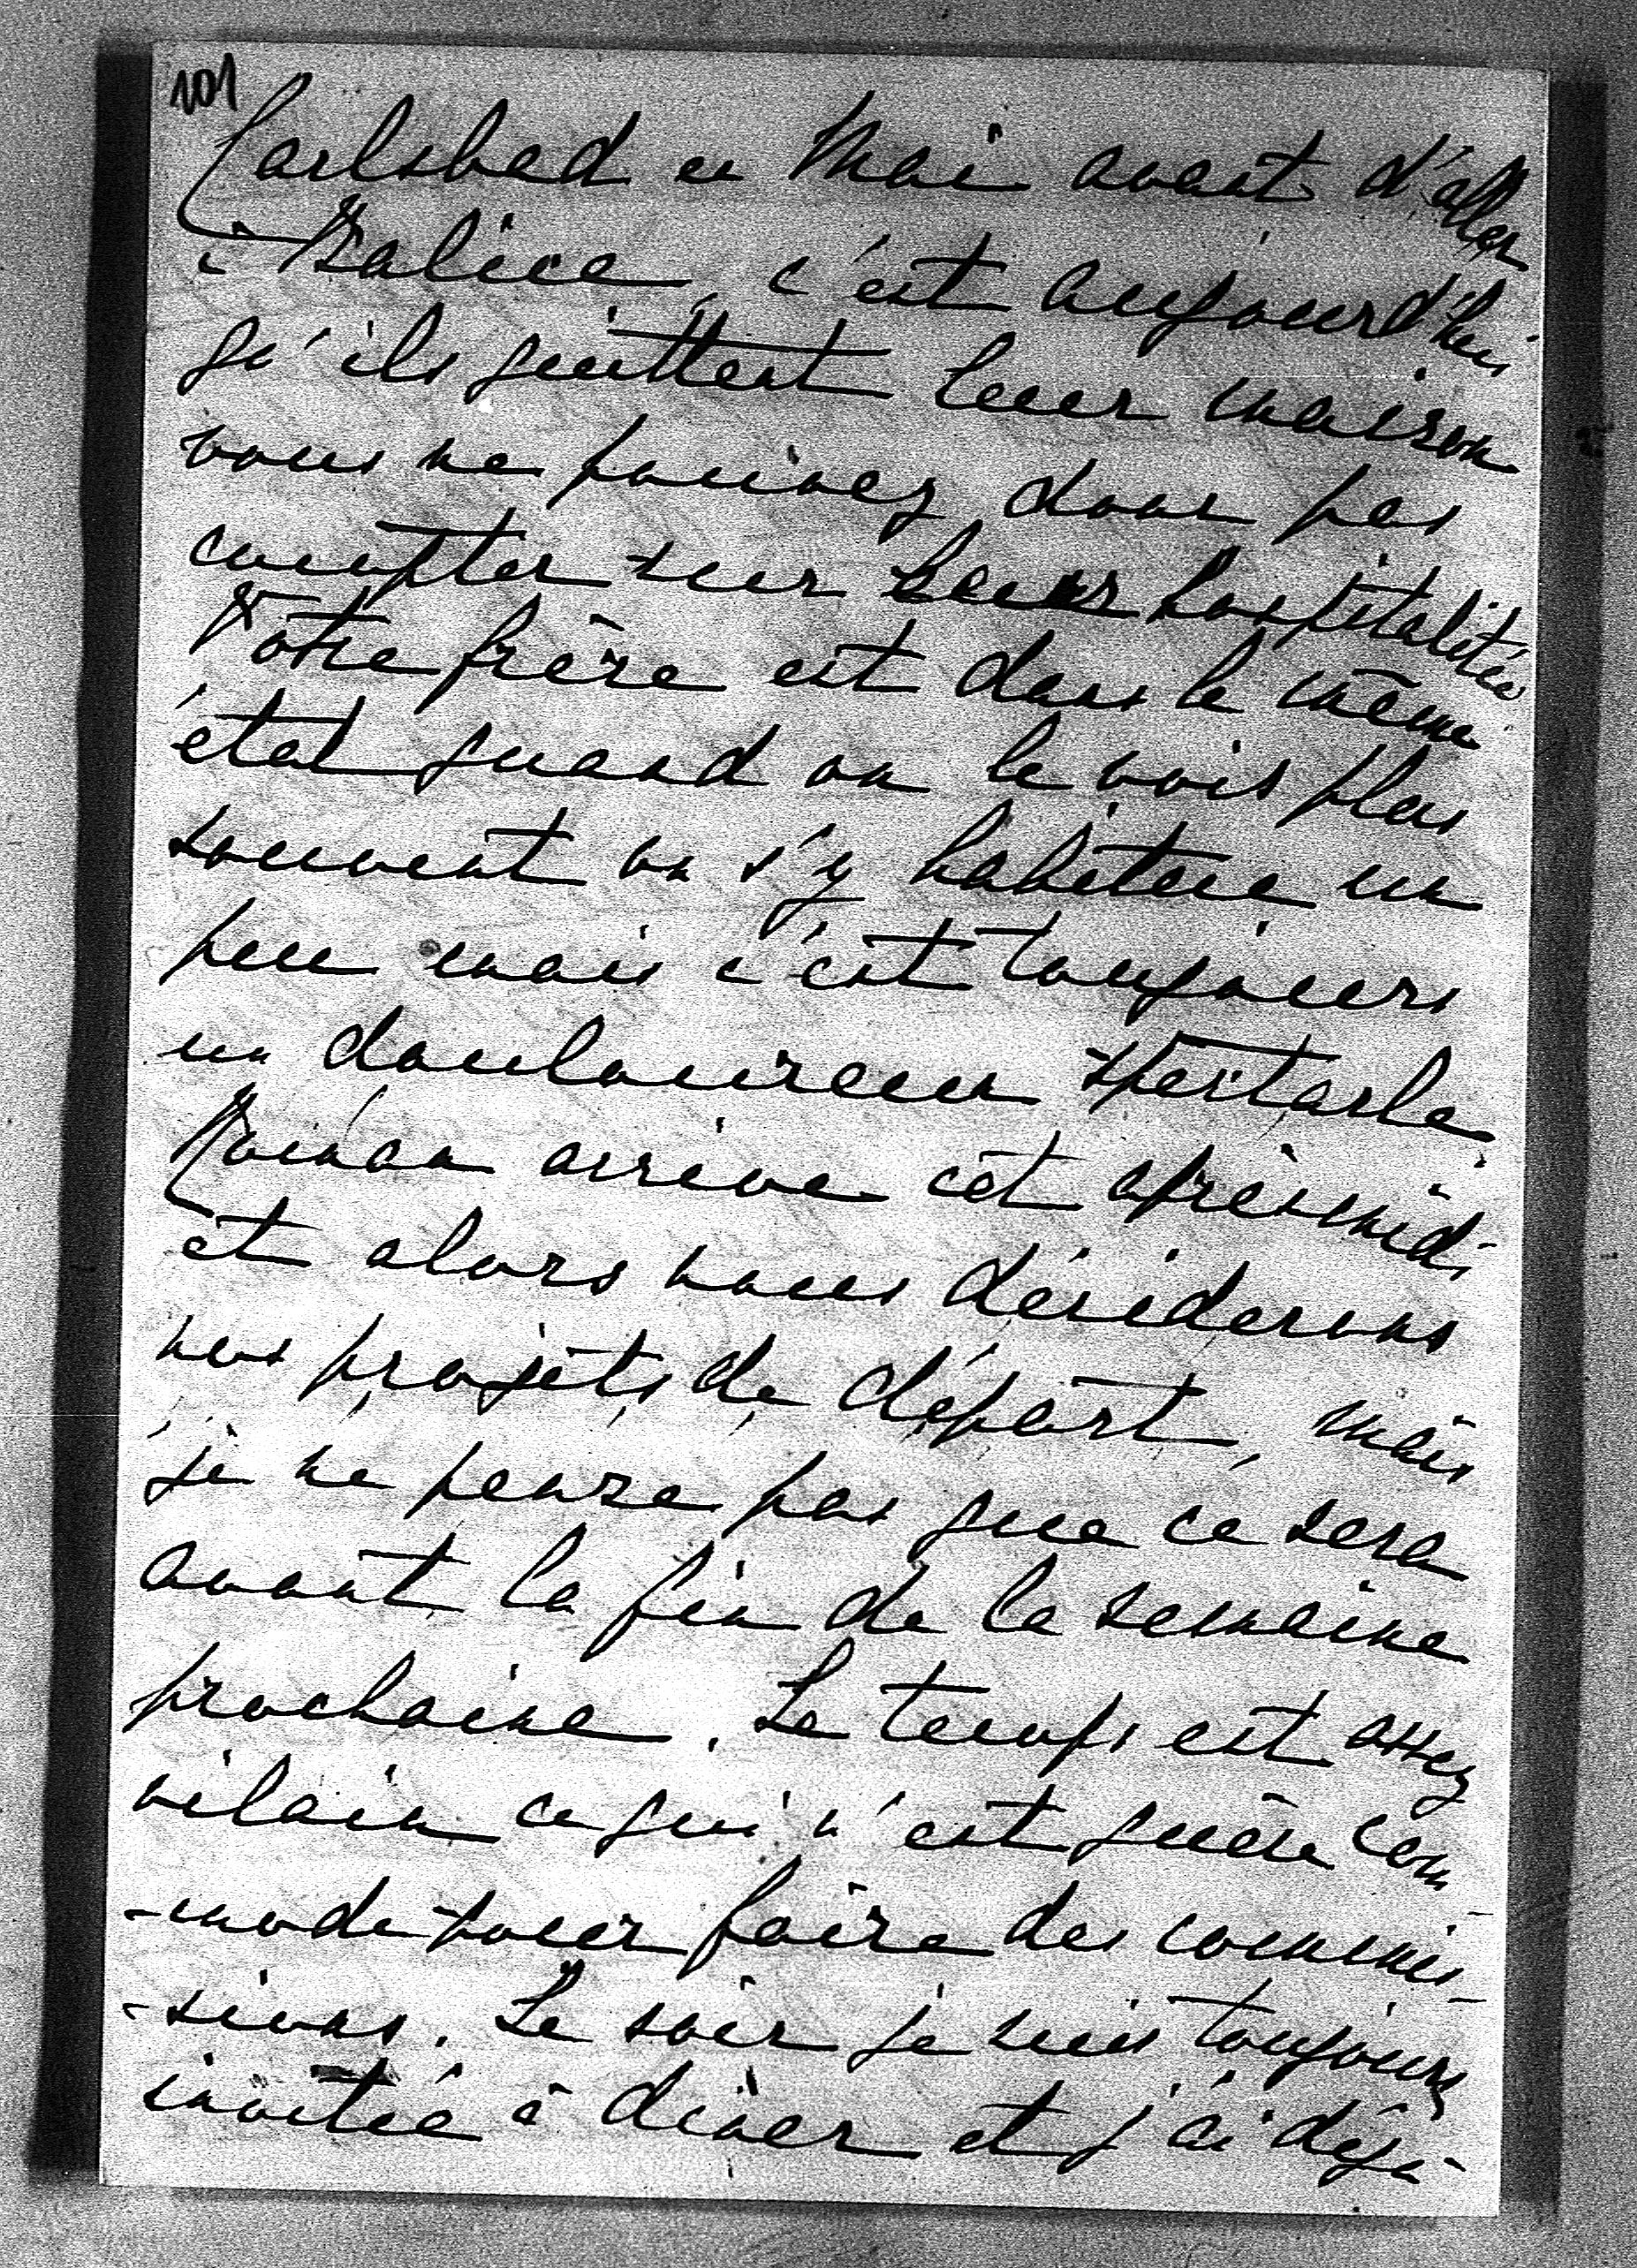 101
Carlsbad en Mai avant d'aller
à Balice, c'est aujourd'hui
qu'ils quittent leur maison
vous ne pouvez donc pas
compter sur leur hospitalité
Votre frère est dans le même
état quand on le vois plus
souvent on s'y habitue un
peu mais c'est toujours
un douloureux spectacle
arrive cet aprèsmidi
et alors nous déciderons
nos projets de départ, mais
je ne pense pas que ce sera
avant la fin de la semaine
prochaine. Le temps est assez
vilain ce qui n'est guère com
-mode pour faire des commis-
-sions. Le soir je suis toujours
invitée à diner et j'ai déjà